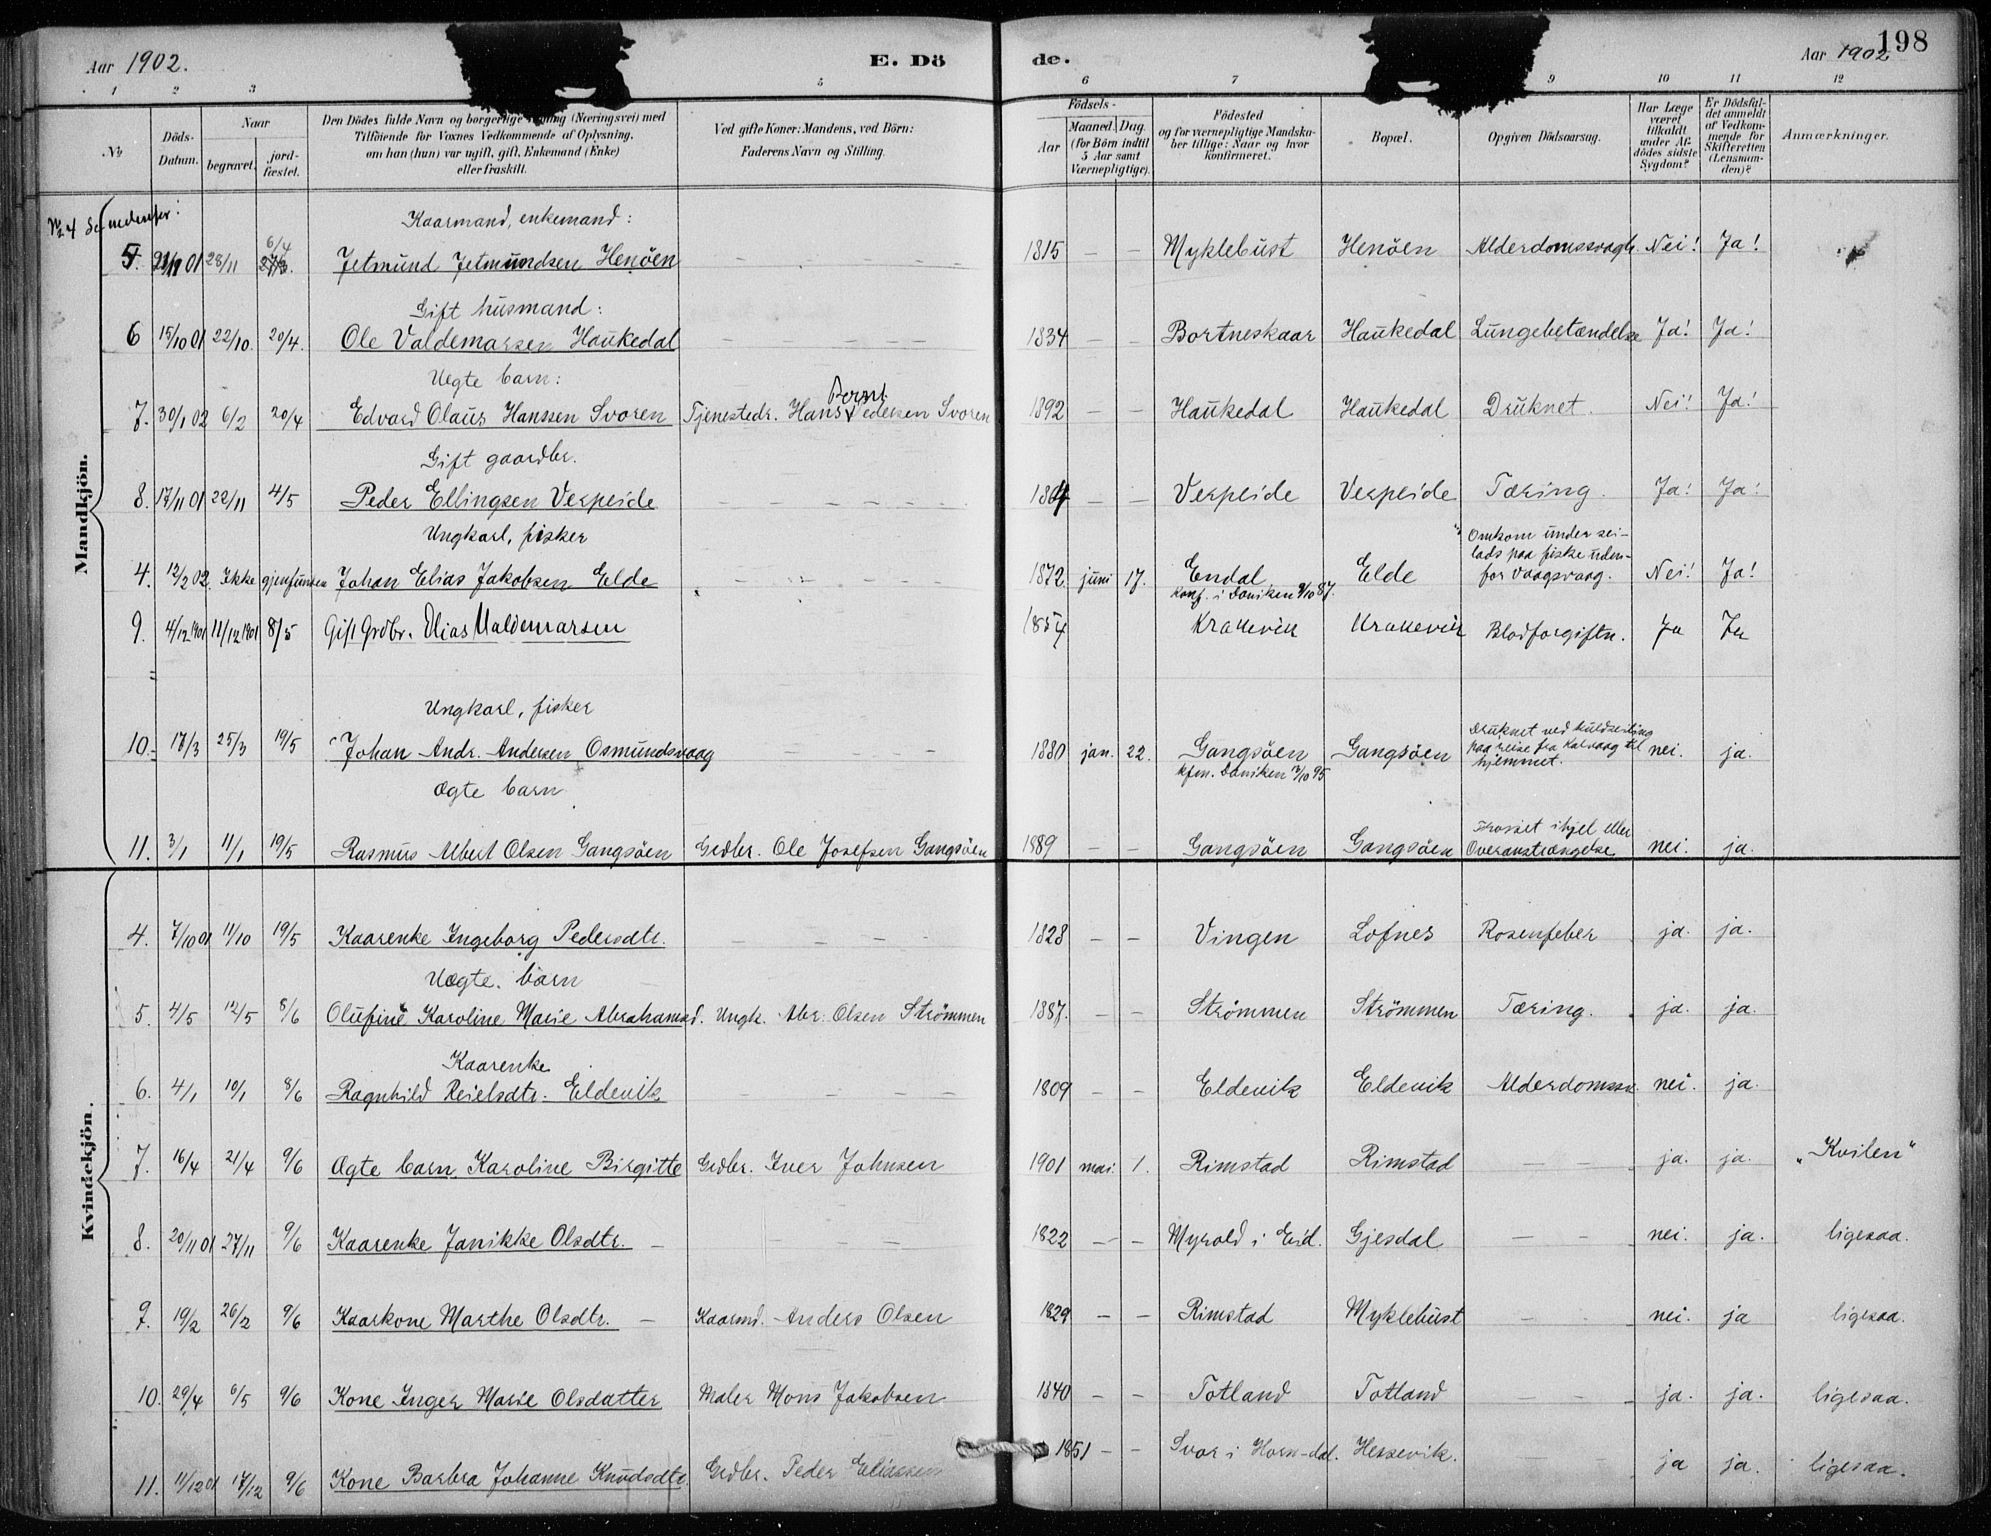 Aar 1902.
E. Dö
de.
Aar 1902
198
1 2 3 5 6 7 9 10 11 12
No
Döds-Datum.
Naar
begravet.
jord-fæstet.
Den Dödes fulde Navn og borgerlige (Næringsvei) med
Tilföiende for Voxnes Vedkommende af Oplysning,
om han (hun) var ugift, gift, Enkemand (Enke)
eller fraskilt.
Ved gifte Koner: Mandens, ved Börn:
Faderens Navn og Stilling.
Födsels-
Aar
Maaned. Dag.
(for Börn indtil
5 Aar samt
Værnepligtige).
Födested
og for værnepligtige Mandska-
ber tillige: Naar og hvor
konfirmeret.
Bopæl.
Opgiven Dödsaarsag.
Har Læge
været
tilkaldt
under Af-
dödes sidste
Sygdom?
Er Dödsfal-
det anmeldt
af Vedkom-
mende for
Skifteretten
(Lensman-
den)?
Anmærkninger.
Mandkjön.
Kaarmand, enkemand:
5. 01 28/11 6/4 Jetmund Jetmundsen Henöen 1815 – – Myklebust Henöen Alderdomssvagh. Nei! Ja!
Gift husmand:
6 15/10 01 22/10. 20/4. Ole Valdemarsen Haukedal – – – – 1834 – – Bortneskaar Haukedal Lungebetændelse Ja! Ja!
Uegte barn:
7. 30/1 02 6/2 20/4 Edvard Olaus Hanssen Svoren Tjenestedr. Hans Bernt Pedersen Svoren 1892 – – Haukedal Haukedal Druknet. Nei! Ja!
Gift gaardbr.
8. 17/11 01 22/11 4/5 Peder Ellingsen Verpeide – – – – – – Verpeide Verpeide Tæring. Ja! Ja!
Ungkarl, fisker
4. 12/2 02. Ikke gjenfunden Johan Elias Jakobsen Elde – – 1872. juni 17. Endal Elde Omkom under sei-
lads paa fiske uden-
for Vaagsvaag. Nei! Ja!
konf. i Daviken 9/10 87.
9. 4/12 1901 11/12 1901 8/5 Gift Grdbr. Elias Valdemarsen 1854 Krakevik Krakevik Blodforgiftn. Ja Ja
Ungkarl, fisker
10. 17/3 25/3 19/5 Johan Andr. Andersen Osmundsvaag – – – 1880 jan. 22. Gangsöen Gangsöen Druknet ved kuldseiling
paa reise fra Kalvaag til
hjemmet. nei. ja.
kfm. Daviken 95
Ægte barn
11. 3/1 11/1 19/5 Rasmus Albert Olsen Gangsöen Grdbr. Ole Josefsen Gangsöen 1889 – – Gangsöen Gangsöen ihjel eller
Overanstrængelse nei. ja.
Kvindekjön.
4. 7/10 01 11/10 19/5 Kaarenke Ingeborg Pedersdtr. – – – – 1828 – – Vingen Lofnes Rosenfeber ja. ja.
Uægte. barn
5. 4/5 12/5 8/6 Olufine Karoline Marie Abrahamsd. Ungk. Abr. Olsen Strömmen 1887. – – Strömmen Strömmen Tæring. ja. ja.
Kaarenke
6. 4/1 10/1 8/6 Ragnhild Reielsdtr. Eldevik – – – – – 1809 – – Eldevik Eldevik Alderdomssv. nei. ja.
7. 16/4 21/4 9/6 Ægte barn. Karoline Birgitte Grdbr. Iver Johnsen 1901 mai. 1. Rimstad Rimstad – – ja. ja. „Kvilen“
8. 20/11 01 27/11 9/6 Kaarenke Janikke Olsdtr. – – – – 1822 – – Myrold i Eid. Gjesdal – – nei. ja. ligesaa.
9. 19/2 26/2 9/6 Kaarkone Marthe Olsdtr. – Kaarmd. Anders Olsen 1829 – – Rimstad Myklebust nei. ja ligesaa.
10. 29/4 6/5 9/6 Kone Inger Marie Olsdatter Maler Mons Jakobsen 1840 – – Totland Totland – – ja. ja. ligesaa.
11. 11/12 01 17/12 9/6 Kone Barbra Johanne Knudsdtr. Grdbr. Peder Eliassen 1851 – – Svor i Horn-dal. Hessevik. – ja ja. ligesaa.